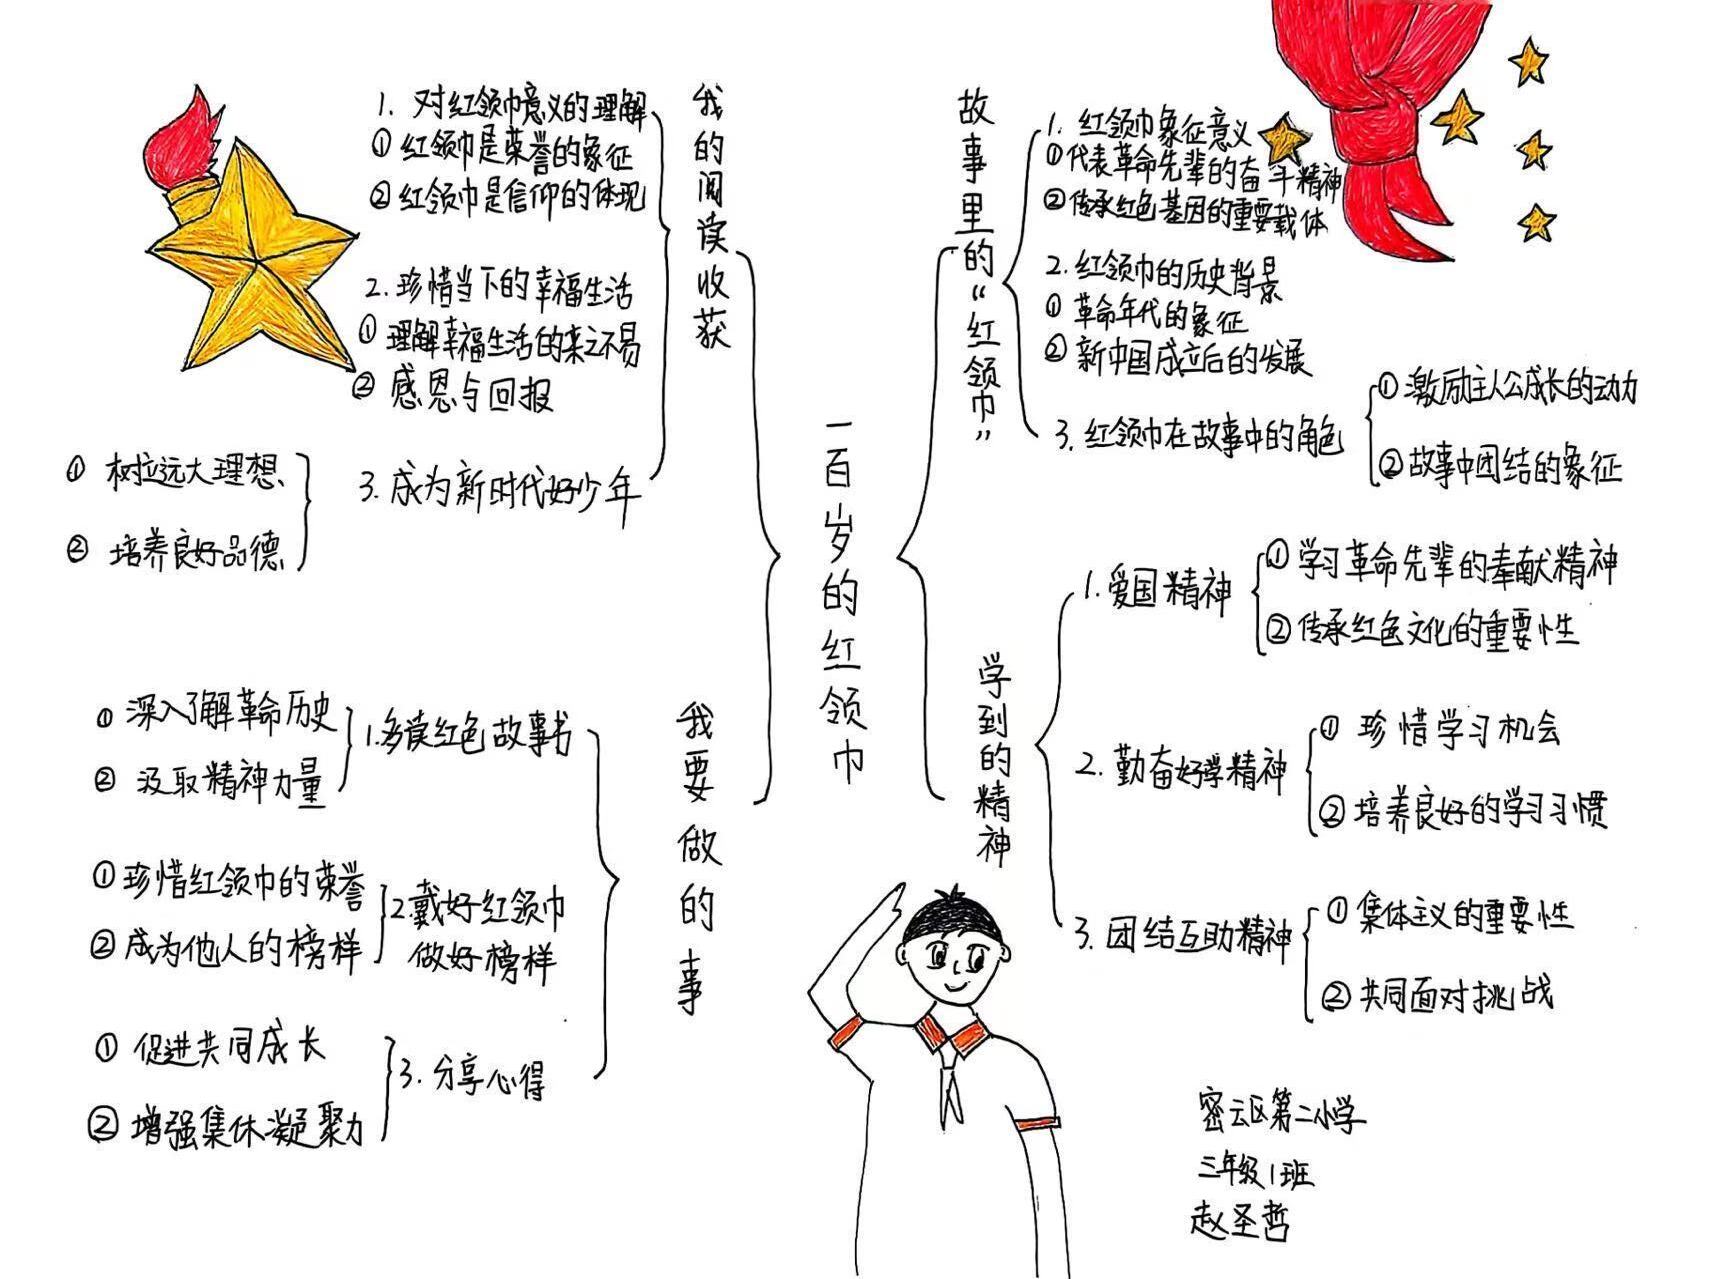 一百岁的红领巾
故事里的“红领巾”
1. 红领巾象征意义
①代表革命先辈的奋斗精神
②传承红色基因的重要载体
2. 红领巾的历史背景
① 革命年代的象征
② 新中国成立后的发展
3. 红领巾在故事中的角色
①激励主人公成长的动力
②故事中团结的象征
学到的精神
1. 爱国精神
①学习革命先辈的奉献精神
②传承红色文化的重要性
2. 勤奋好学精神
① 珍惜学习机会
② 培养良好的学习习惯
3. 团结互助精神
① 集体主义的重要性
② 共同面对挑战
我的阅读收获
1. 对红领巾意义的理解
① 红领巾是荣誉的象征
② 红领巾是信仰的体现
2. 珍惜当下的幸福生活
① 理解幸福生活的来之不易
② 感恩与回报
3. 成为新时代好少年
① 树立远大理想
② 培养良好品德
我要做的事
1. 多读红色故事书
① 深入了解革命历史
② 汲取精神力量
2. 戴好红领巾
做好榜样
①珍惜红领巾的荣誉
②成为他人的榜样
3. 分享心得
① 促进共同成长
② 增强集体凝聚力
密云区第二小学
三年级1班
赵圣哲